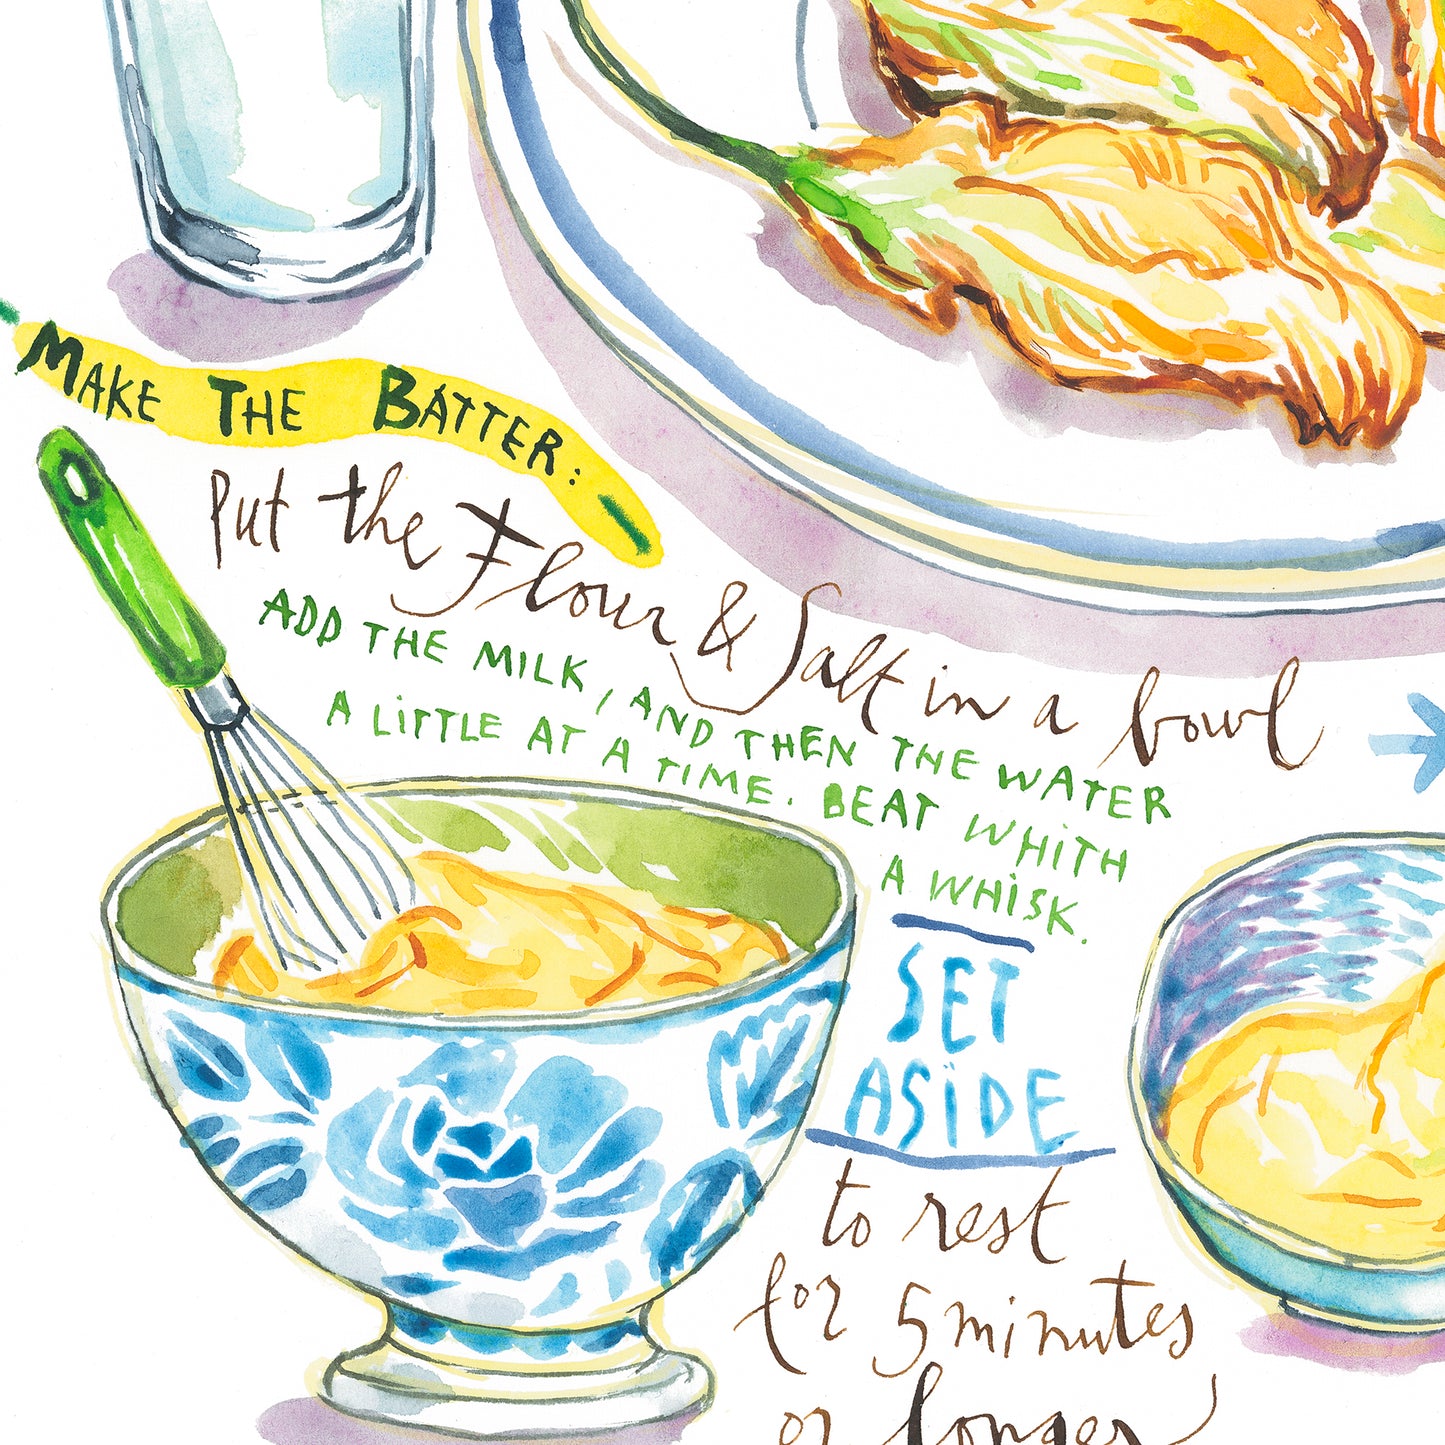 MAKE THE BATTER:
Put the Flour & Salt in a bowl
ADD THE MILK, AND THEN THE WATER
A LITTLE AT A TIME. BEAT WHITH
A WHISK.
SET
ASIDE
to rest
for 5 minutes
or longer